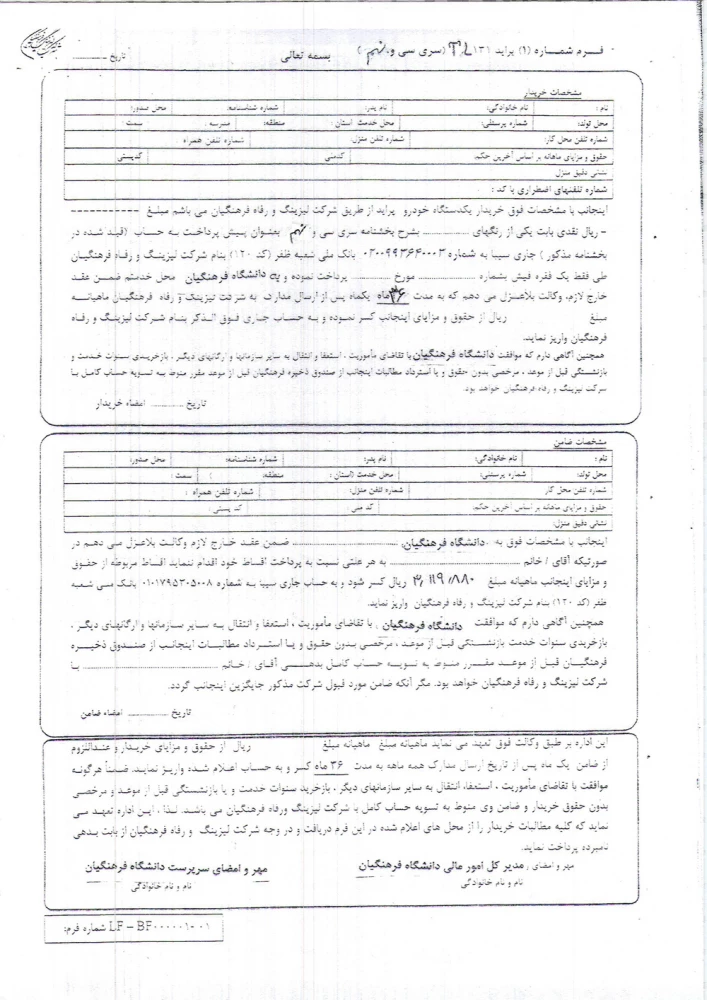 فرم شماره (۱) پراید ۱۳۱ TL (سری سی و نهم)
بسمه تعالی
تاریخ
مشخصات خریدار
نام : نام خانوادگی: نام پدر: شماره شناسنامه: محل صدور:
محل تولد: شماره پرسنلی: محل خدمت استان : منطقه: مدرسه : سمت :
شماره تلفن محل کار: شماره تلفن منزل: شماره تلفن همراه
حقوق و مزایای ماهانه بر اساس آخرین حکم: کدملی کدپستی
نشانی دقیق منزل
شماره تلفنهای اضطراری با کد :
اینجانب با مشخصات فوق خریدار یکدستگاه خودرو پراید از طریق شرکت لیزینگ و رفاه فرهنگیان می باشم مبلغ -----------
- ریال نقدی بابت یکی از رنگهای .................... بشرح بخشنامه سری سی و نهم بعنوان پیش پرداخت به حساب (قید شده در
بخشنامه مذکور) جاری سیبا به شماره ۰۲۰۰۹۹۳۶۴۰۰۰۳ بانک ملی شعبه ظفر (کد ۱۲۰) بنام شرکت لیزینگ و رفاه فرهنگیان
طی فقط یک فقره فیش بشماره .................... مورخ .................... پرداخت نموده و به دانشگاه فرهنگیان محل خدمتم ضمن عقد
خارج لازم، وکالت بلاعزل می دهم که به مدت ۳۶ماه یکماه پس از ارسال مدارک به شرکت لیزینگ و رفاه فرهنگیان ماهیانه
مبلغ ریال از حقوق و مزایای اینجانب کسر نموده و به حساب جاری فوق الذکر بنام شرکت لیزینگ و رفاه
فرهنگیان واریز نماید.
همچنین آگاهی دارم که موافقت دانشگاه فرهنگیان با تقاضای مأموریت ، استعفا و انتقال به سایر سازمانها و ارگانهای دیگر ، بازخریدی سنوات خدمت و
بازنشستگی قبل از موعد ، مرخصی بدون حقوق و یا استرداد مطالبات اینجانب از صندوق ذخیره فرهنگیان قبل از موعد مقرر منوط به تسویه حساب کامل با
شرکت لیزینگ و رفاه فرهنگیان خواهد بود.
تاریخ .................... امضاء خریدار
مشخصات ضامن
نام : نام خانوادگی: نام پدر: شماره شناسنامه: محل صدور:
محل تولد: شماره پرسنلی: محل خدمت (استان : منطقه: ) سمت :
شماره تلفن محل کار شماره تلفن منزل: شماره تلفن همراه :
حقوق و مزایای ماهانه بر اساس آخرین حکم: کد ملی : کد پستی :
نشانی دقیق منزل:
اینجانب با مشخصات فوق به دانشگاه فرهنگیان .................... ضمن عقد خارج لازم وکالت بلاعزل می دهم در
صورتیکه آقای / خانم .................... به هر علتی نسبت به پرداخت اقساط خود اقدام ننماید اقساط مربوطه از حقوق
و مزایای اینجانب ماهیانه مبلغ ۳/۱۱۹/۸۸۰ ریال کسر شود و به حساب جاری سیبا به شماره ۰۱۰۱۷۹۵۳۰۵۰۰۸ بانک ملی شعبه
ظفر (کد ۱۲۰) بنام شرکت لیزینگ و رفاه فرهنگیان واریز نماید.
همچنین آگاهی دارم که موافقت دانشگاه فرهنگیان با تقاضای مأموریت ، استعفا و انتقال به سایر سازمانها و ارگانهای دیگر ،
بازخریدی سنوات خدمت بازنشستگی قبل از موعد ، مرخصی بدون حقوق و یا استرداد مطالبات اینجانب از صندوق ذخیره
فرهنگیان قبل از موعد مقرر منوط به تسویه حساب کامل بدهی آقای / خانم .................... با
شرکت لیزینگ و رفاه فرهنگیان خواهد بود. مگر آنکه ضامن مورد قبول شرکت مذکور جایگزین اینجانب گردد.
تاریخ .................... امضاء ضامن
این اداره بر طبق وکالت فوق تعهد می نماید ماهیانه مبلغ ماهیانه مبلغ ریال از حقوق و مزایای خریدار و عنداللزوم
از ضامن یک ماه پس از تاریخ ارسال مدارک همه ماهه به مدت ۳۶ ماه کسر و به حساب اعلام شده واریز نماید. ضمناً هرگونه
موافقت با تقاضای مأموریت ، استعفا، انتقال به سایر سازمانهای دیگر ، بازخرید سنوات خدمت و یا بازنشستگی قبل از موعد و مرخصی
بدون حقوق خریدار و ضامن وی منوط به تسویه حساب کامل با شرکت لیزینگ ورفاه فرهنگیان می باشد. لذا ، این اداره تعهد می
نماید که کلیه مطالبات خریدار را از محل های اعلام شده در این فرم دریافت و در وجه شرکت لیزینگ و رفاه فرهنگیان از بابت بدهی
نامبرده پرداخت نماید.
مهر و امضای مدیر کل امور مالی دانشگاه فرهنگیان
نام و نام خانوادگی
مهر و امضای سرپرست دانشگاه فرهنگیان
نام و نام خانوادگی
شماره فرم: LF – BF۰۰۰۰۰۱-۰۱